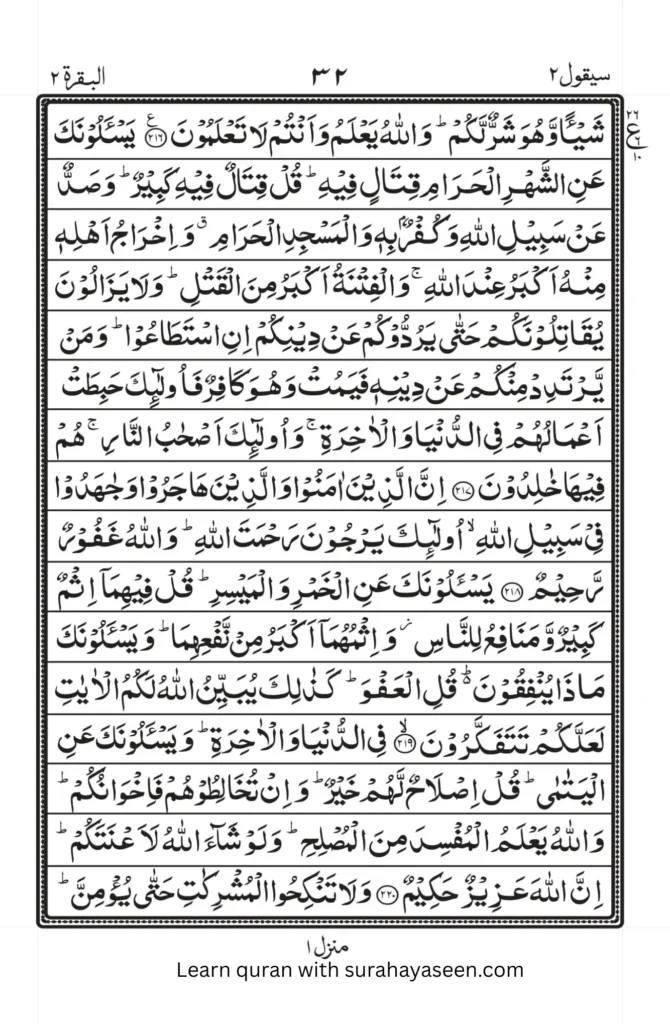 سيقول٢ ٣٢ البقرة٢
شَيْـًٔا وَّهُوَ شَرٌّ لَّكُمْ ؕ وَاللّٰهُ يَعْلَمُ وَاَنْتُمْ لَا تَعْلَمُوْنَ ﴿۲۱۶﴾ ع يَسْـَٔلُوْنَكَ
٢٦ ع ٦ ١٠
عَنِ الشَّهْرِ الْحَرَامِ قِتَالٍ فِيْهِ ؕ قُلْ قِتَالٌ فِيْهِ كَبِيْرٌ ؕ وَصَدٌّ
عَنْ سَبِيْلِ اللّٰهِ وَكُفْرٌۢ بِهٖ وَالْمَسْجِدِ الْحَرَامِ ۗ وَاِخْرَاجُ اَهْلِهٖ
مِنْهُ اَكْبَرُ عِنْدَ اللّٰهِ ۚ وَالْفِتْنَةُ اَكْبَرُ مِنَ الْقَتْلِ ؕ وَلَا يَزَالُوْنَ
يُقَاتِلُوْنَكُمْ حَتّٰى يَرُدُّوْكُمْ عَنْ دِيْنِكُمْ اِنِ اسْتَطَاعُوْا ؕ وَمَنْ
يَّرْتَدِدْ مِنْكُمْ عَنْ دِيْنِهٖ فَيَمُتْ وَهُوَ كَافِرٌ فَاُولٰٓئِكَ حَبِطَتْ
اَعْمَالُهُمْ فِى الدُّنْيَا وَالْاٰخِرَةِ ۚ وَاُولٰٓئِكَ اَصْحٰبُ النَّارِ ۚ هُمْ
فِيْهَا خٰلِدُوْنَ ﴿۲۱۷﴾ اِنَّ الَّذِيْنَ اٰمَنُوْا وَالَّذِيْنَ هَاجَرُوْا وَجٰهَدُوْا
فِىْ سَبِيْلِ اللّٰهِ ۙ اُولٰٓئِكَ يَرْجُوْنَ رَحْمَتَ اللّٰهِ ؕ وَاللّٰهُ غَفُوْرٌ
رَّحِيْمٌ ﴿۲۱۸﴾ يَسْـَٔلُوْنَكَ عَنِ الْخَمْرِ وَالْمَيْسِرِ ؕ قُلْ فِيْهِمَاۤ اِثْمٌ
كَبِيْرٌ وَّمَنَافِعُ لِلنَّاسِ ؗ وَاِثْمُهُمَاۤ اَكْبَرُ مِنْ نَّفْعِهِمَا ؕ وَيَسْـَٔلُوْنَكَ
مَاذَا يُنْفِقُوْنَ ؕ۬ قُلِ الْعَفْوَ ؕ كَذٰلِكَ يُبَيِّنُ اللّٰهُ لَكُمُ الْاٰيٰتِ
لَعَلَّكُمْ تَتَفَكَّرُوْنَ ۙ﴿۲۱۹﴾ فِى الدُّنْيَا وَالْاٰخِرَةِ ؕ وَيَسْـَٔلُوْنَكَ عَنِ
الْيَتٰمٰى ؕ قُلْ اِصْلَاحٌ لَّهُمْ خَيْرٌ ؕ وَاِنْ تُخَالِطُوْهُمْ فَاِخْوَانُكُمْ ؕ
وَاللّٰهُ يَعْلَمُ الْمُفْسِدَ مِنَ الْمُصْلِحِ ؕ وَلَوْ شَآءَ اللّٰهُ لَاَعْنَتَكُمْ ؕ
اِنَّ اللّٰهَ عَزِيْزٌ حَكِيْمٌ ﴿۲۲۰﴾ وَلَا تَنْكِحُوا الْمُشْرِكٰتِ حَتّٰى يُؤْمِنَّ ؕ
منزل١
Learn quran with surahayaseen.com